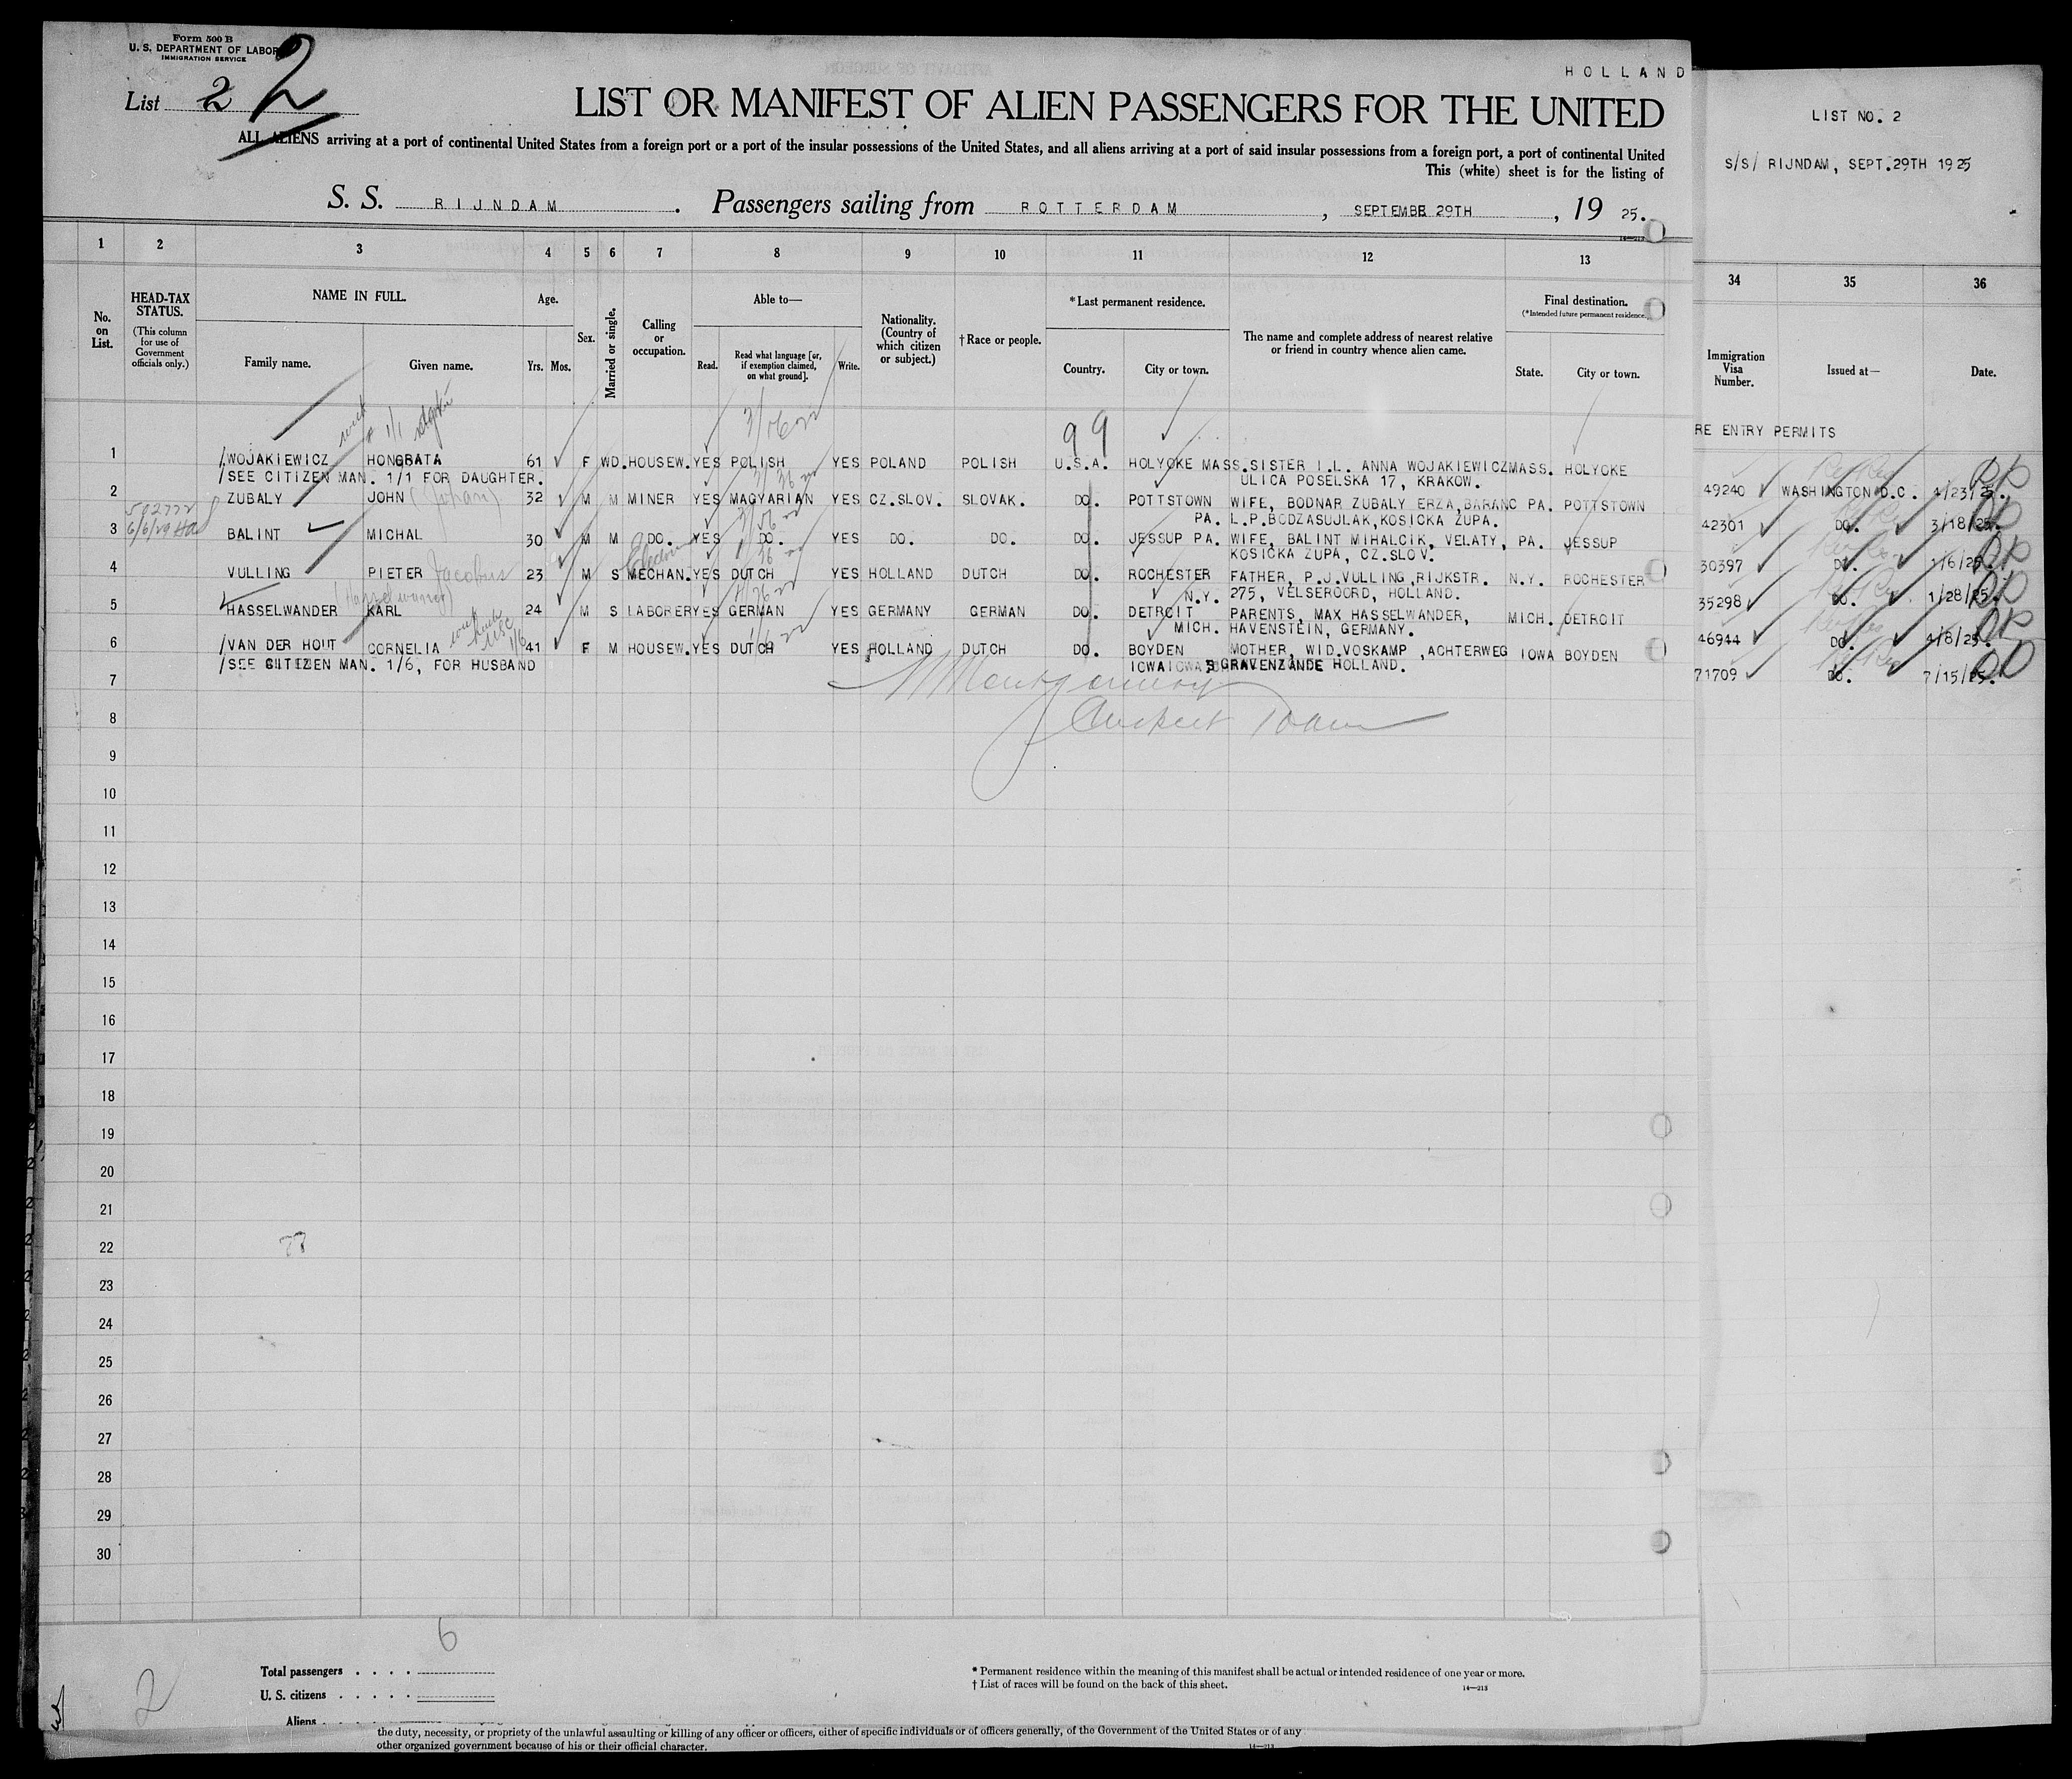 Form 500 B
U. S. DEPARTMENT OF LABOR
IMMIGRATION SERVICE
List 2 2
HOLLAND
LIST OR MANIFEST OF ALIEN PASSENGERS FOR THE UNITED
ALL ALIENS arriving at a port of continental United States from a foreign port or a port of the insular possessions of the United States, and all aliens arriving at a port of said insular possessions from a foreign port, a port of continental United
This (white) sheet is for the listing of
S. S. RIJNDAM. Passengers sailing from ROTTERDAM, SEPTEMBER 29TH, 19 25.
LIST NO. 2
S/S/ RIJNDAM, SEPT.29TH 1925
1 2 3 4 5 6 7 8 9 10 11 12 13 34 35 36
No. on List.
HEAD-TAX STATUS.
(This column for use of Government officials only.)
NAME IN FULL.
Family name. Given name.
Age.
Yrs. Mos.
Sex.
Married or single.
Calling or occupation.
Able to—
Read. Read what language [or, if exemption claimed, on what ground]. Write.
Nationality. (Country of which citizen or subject.)
† Race or people.
* Last permanent residence.
Country. City or town.
The name and complete address of nearest relative or friend in country whence alien came.
Final destination.
(*Intended future permanent residence.)
State. City or town.
Immigration Visa Number.
Issued at—
Date.
RE ENTRY PERMITS
99
1 WOJAKIEWICZ HONORATA 61 F WD. HOUSEW. YES POLISH YES POLAND POLISH U.S.A. HOLYOKE MASS. SISTER I.L. ANNA WOJAKIEWICZ MASS. HOLYOKE
/SEE CITIZEN MAN. 1/1 FOR DAUGHTER. ULICA POSELSKA 17, KRAKOW.
49240 WASHINGTON D.C. 4/23/25.
2 ZUBALY JOHN (Johan) 32 M M MINER YES MAGYARIAN YES CZ.SLOV. SLOVAK. DO. POTTSTOWN WIFE, BODNAR ZUBALY ERZA, BARANC PA. POTTSTOWN
PA. L.P.BODZASUJLAK, KOSICKA ZUPA.
42301 DO. 3/18/25.
3 BALINT MICHAL 30 M M DO. YES DO. YES DO. DO. DO. JESSUP PA. WIFE, BALINT MIHALCIK, VELATY, PA. JESSUP
KOSICKA ZUPA, CZ.SLOV.
30397 DO. 1/6/25.
4 VULLING PIETER Jacobus 23 M S MECHAN. YES DUTCH YES HOLLAND DUTCH DO. ROCHESTER FATHER, P.J.VULLING, RIJKSTR. N.Y. ROCHESTER
N.Y. 275, VELSEROORD, HOLLAND.
35298 DO. 1/28/25.
5 HASSELWANDER KARL 24 M S LABORER YES GERMAN YES GERMANY GERMAN DO. DETROIT PARENTS, MAX HASSELWANDER, MICH. DETROIT
MICH. HAVENSTEIN, GERMANY.
46944 DO. 4/8/25.
6 /VAN DER HOUT CORNELIA 41 F M HOUSEW. YES DUTCH YES HOLLAND DUTCH DO. BOYDEN MOTHER, WID.VOSKAMP, ACHTERWEG IOWA BOYDEN
/SEE CITIZEN MAN. 1/6, FOR HUSBAND IOWA GRAVENZANDE HOLLAND.
71709 DO. 7/15/25.
7
8
9
10
11
12
13
14
15
16
17
18
19
20
21
22
23
24
25
26
27
28
29
30
6
2
Total passengers
U. S. citizens
Aliens
* Permanent residence within the meaning of this manifest shall be actual or intended residence of one year or more.
† List of races will be found on the back of this sheet.
14—213
the duty, necessity, or propriety of the unlawful assaulting or killing of any officer or officers, either of specific individuals or of officers generally, of the Government of the United States or of any
other organized government because of his or their official character.
14—213